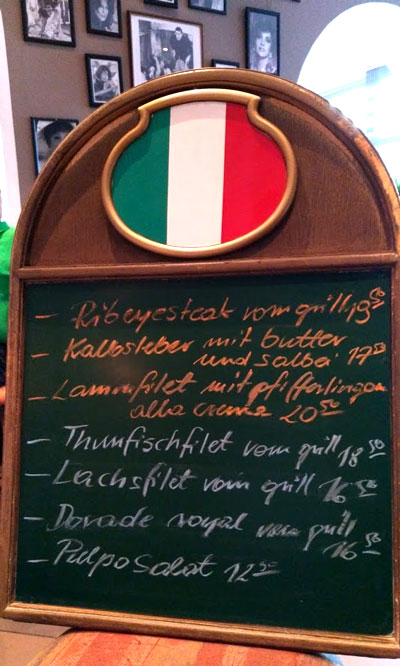 - Ribeyesteak vom grill 19 50
- Kalbsleber mit butter
und salbei 17 50
- Lammfilet mit pfifferlingen
alla creme 20 50
- Thunfischfilet vom grill 18 50
- Lachsfilet vom grill 16 50
- Dorade royal vom grill
16 50
- Pulpo Salat 12 50